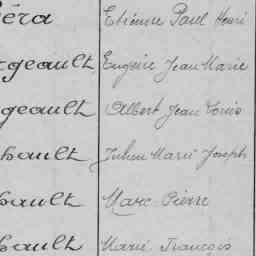 éra Etienne Paul Henri
geault Eugène Jean Marie
geault Albert Jean Louis
bault Julien Marie Joseph
bault Marc Pierre
bault Marie François